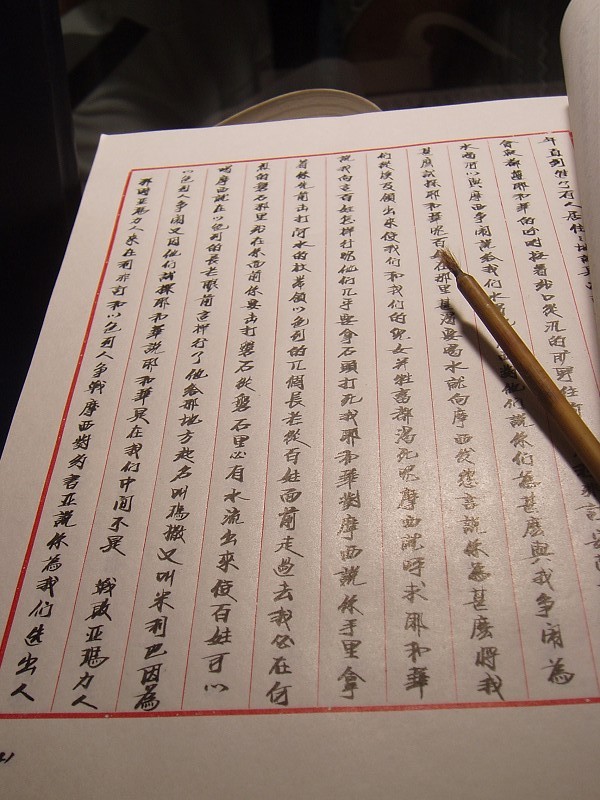 年直到進了有人居住之地
會眾都遵耶和華的吩咐按着站口從汛的曠野往
水喝所以與摩西爭鬧說給我們水對他們說你們為甚麼與我爭鬧為
甚麼試探耶和華呢百姓在那里甚渴要喝水就向摩西發怨言說你為甚麼將我
們從埃及領出來使我們和我們的兒女并牲畜都渴死呢摩西就呼求耶和華
說我向這百姓怎樣行呢他們几乎要拿石頭打死我耶和華對摩西說你手里拿
着你先前击打河水的杖帶領以色列的几個長老從百姓面前走過去我必在何
烈的磐石那里站在你面前你要击打磐石從磐石里必有水流出來使百姓可以
喝摩西就在以色列的長老眼前這樣行了他給那地方起名叫瑪撒又叫米利巴因為
以色列人爭鬧又因他們試探耶和華說耶和華是在我們中間不是 戰敗亞瑪力人
那時亞瑪力人來在利非訂和以色列人爭戰摩西對約書亞說你為我們選出人